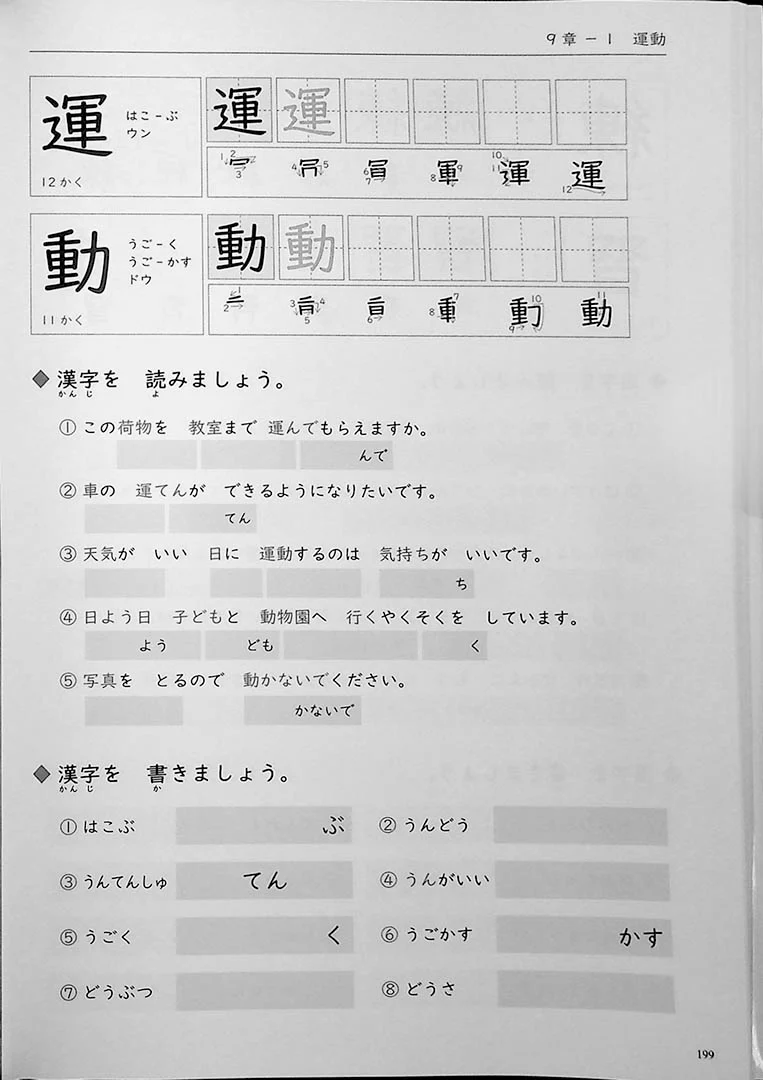 9章－1　運動
運
はこ－ぶ
ウン
12かく
運 運
1 2 3 4 5 6 7 8 9 10 11 12
動
うご－く
うご－かす
ドウ
11かく
動 動
1 2 3 4 5 6 7 8 9 10 11
◆漢字を　読みましょう。
かんじ　よ
①この荷物を　教室まで　運んでもらえますか。
んで
②車の　運てんが　できるようになりたいです。
てん
③天気が　いい　日に　運動するのは　気持ちが　いいです。
ち
④日よう日　子どもと　動物園へ　行くやくそくを　しています。
よう　ども　く
⑤写真を　とるので　動かないでください。
かないで
◆漢字を　書きましょう。
かんじ　か
①はこぶ　ぶ　②うんどう
③うんてんしゅ　てん　④うんがいい
⑤うごく　く　⑥うごかす　かす
⑦どうぶつ　⑧どうさ
199